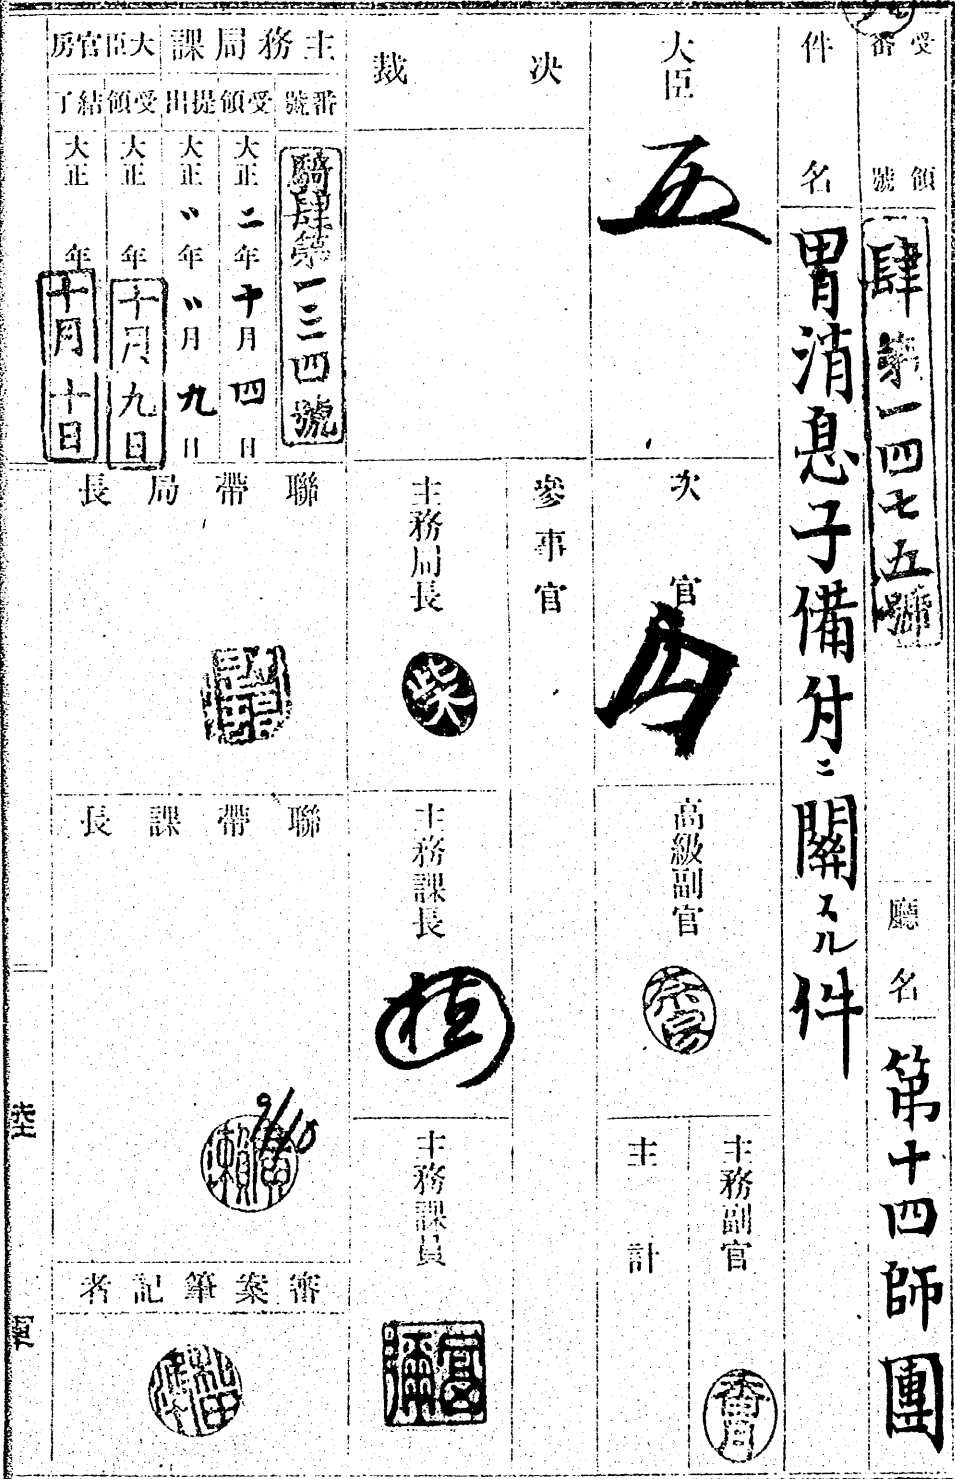 受領番號
肆第一四七五號
廳名
第十四師團
件名
胃消息子備付ニ關スル件
大臣
次官
高級副官
主務副官
番
主計
決裁
參事官
主務局長
柴
主務課長
主務課員
主務局課
番號
騎肆第一三四號
受領
大正二年十月四日
提出
大正〃年〃月九日
大臣官房
受領
大正 年十月九日
結了
大正 年十月十日
聯帶局長
聯帶課長
9/10
廣瀨
審案筆記者
陸軍